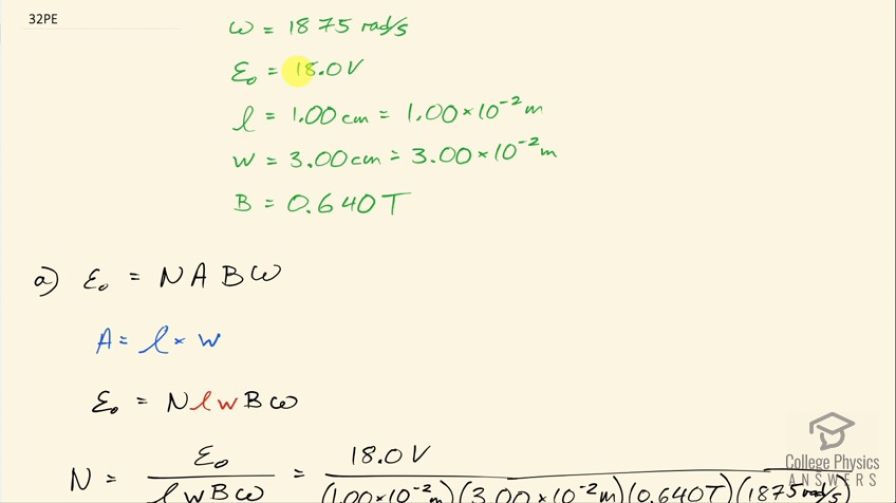 32PE
ω = 1875 rad/s
ε₀ = 18.0 V
l = 1.00 cm = 1.00 × 10⁻² m
w = 3.00 cm = 3.00 × 10⁻² m
B = 0.640 T
a) ε₀ = N A B ω
A = l × w
ε₀ = N l w B ω
N = ε₀ / l w B ω = 18.0 V / (1.00 × 10⁻² m)(3.00 × 10⁻² m)(0.640 T)(1875 rad/s)
College Physics
ANSWERS